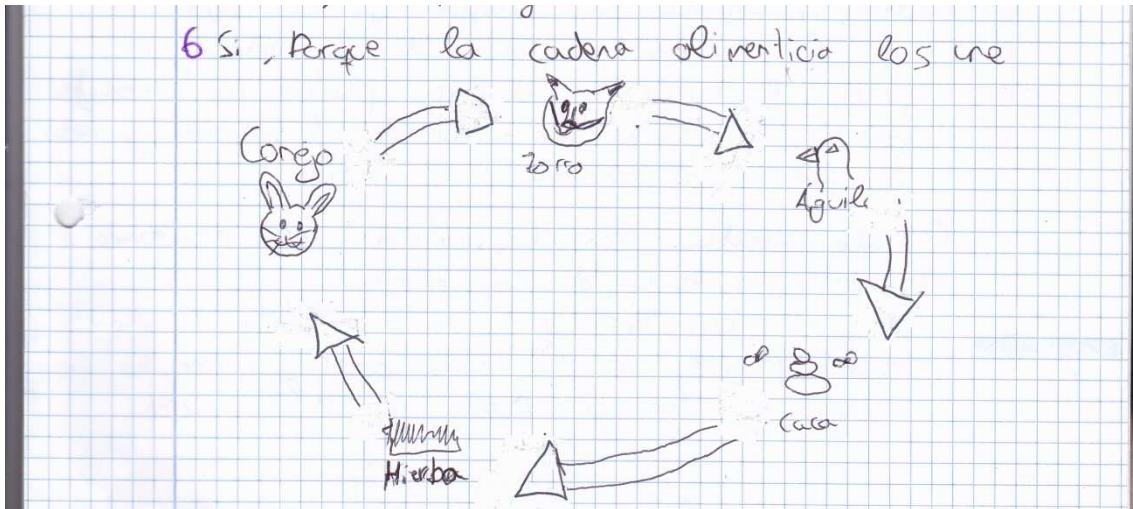 6 Si, Porque la cadena alimenticia los une
Conejo
Zorro
Águila
Caca
Hierba